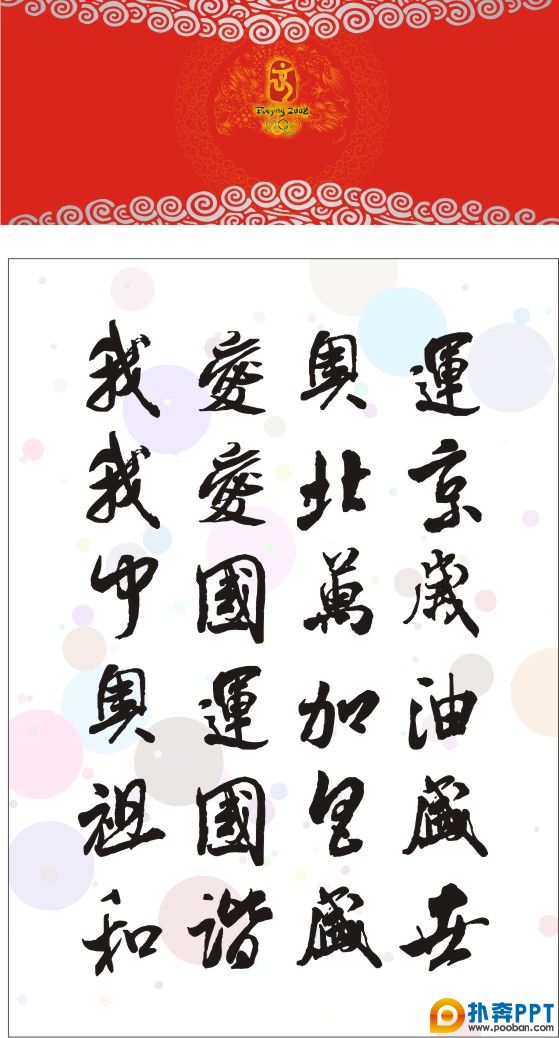 Beijing 2008
我愛奧運
我愛北京
中國萬歲
奧運加油
祖國昌盛
和諧盛世
扑奔PPT
www.pooban.com